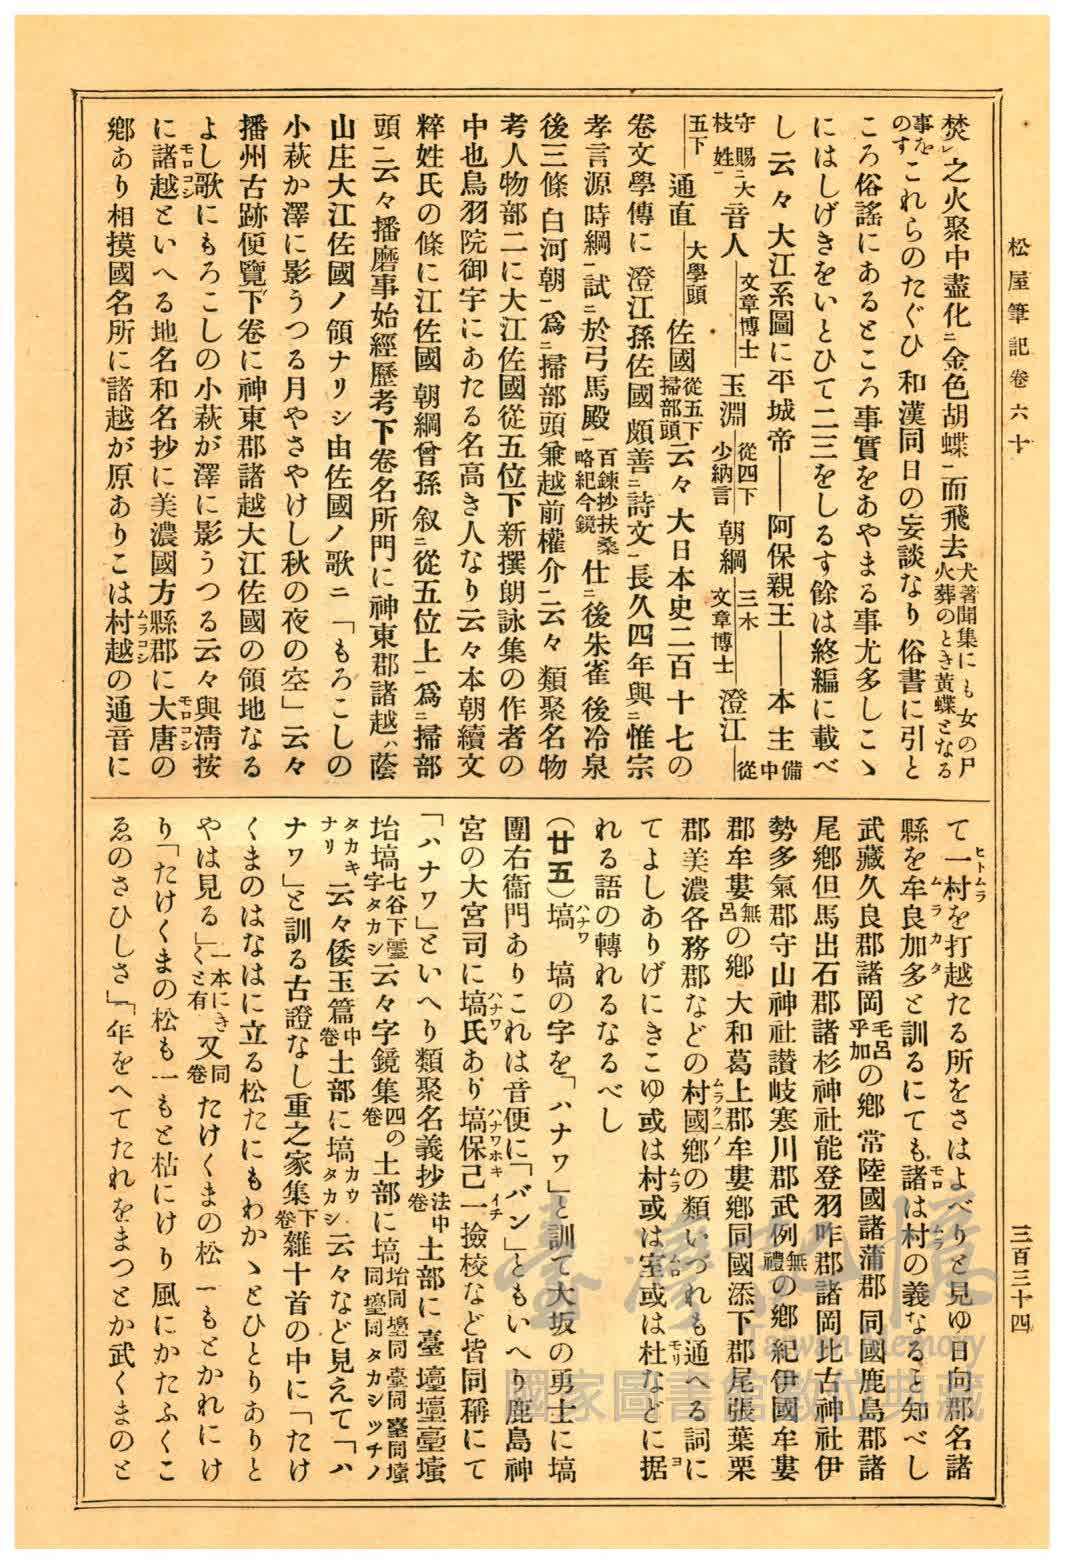 松屋筆記卷六十
焚㆑之火聚中盡化㆓金色胡蝶㆒而飛去犬著聞集にも女の尸火葬のとき黃蝶となる
事をのすこれらのたぐひ和漢同日の妄談なり俗書に引と
ころ俗謠にあるところ事實をあやまる事尤多しこゝ
にはしげきをいとひて二三をしるす餘は終編に載べ
し云々大江系圖に平城帝――阿保親王――本主備中
守賜㆓大枝姓㆒音人文章博士玉淵從四下少納言朝綱三木文章博士澄江從
五下通直大學頭佐國從五下掃部頭云々大日本史二百十七の
卷文學傳に澄江孫佐國頗善㆓詩文㆒長久四年與㆓惟宗
孝言源時綱㆒試㆓於弓馬殿㆒百鍊抄扶桑略紀今鏡仕㆓後朱雀後冷泉
後三條白河朝㆒爲㆓掃部頭兼越前權介㆒云々類聚名物
考人物部二に大江佐國從五位下新撰朗詠集の作者の
中也鳥羽院御宇にあたる名高き人なり云々本朝續文
粹姓氏の條に江佐國朝綱曾孫叙㆓從五位上㆒爲㆓掃部
頭㆒云々播磨事始經歷考下卷名所門に神東郡諸越ハ蔭
山庄大江佐國ノ領ナリシ由佐國ノ歌ニ「もろこしの
小萩か澤に影うつる月やさやけし秋の夜の空」云々
播州古跡便覽下卷に神東郡諸越大江佐國の領地なる
よし歌にもろこしの小萩が澤に影うつる云々與淸按
に諸越モロコシといへる地名和名抄に美濃國方縣郡に村越ムラコシ大唐モロコシの
鄕あり相摸國名所に諸越が原ありこは村越の通音に
て一村ヒトムラを打越たる所をさはよべりと見ゆ日向郡名諸
縣を牟良加多ムラカタと訓るにても諸モロは村ムラの義なると知べし
武藏久良郡諸岡毛呂乎加の鄕常陸國諸蒲郡同國鹿島郡諸
尾鄕但馬出石郡諸杉神社能登羽咋郡諸岡比古神社伊
勢多氣郡守山神社讃岐寒川郡武例無禮の鄕紀伊國牟婁
郡牟婁無呂の鄕大和葛上郡牟婁鄕同國添下郡尾張葉栗
郡美濃各務郡などの村國鄕ムラクニノの類いづれも通へる詞に
てよしありげにきこゆ或は村ムラ或は室ムロ或は杜モリなどに据ヨ
れる語の轉れるなるべし
（廿五）塙ハナワ　塙の字を「ハナワ」と訓て大坂の勇士に塙
團右衞門ありこれは音便に「バン」ともいへり鹿島神
宮の大宮司に塙氏ハナワあり塙保己一ハナワホキイチ撿校など皆同稱にて
「ハナワ」といへり類聚名義抄法中卷土部に
七谷下字タカシ云々字鏡集四の卷土部に塙
タカキナリ云々倭玉篇中卷土部に塙カウタカシ云々など見えて「ハ
ナワ」と訓る古證なし重之家集下卷雜十首の中に「たけ
くまのはなはに立る松たにもわかゝとひとりありと
やは見る」一本にきくと有又同卷たけくまの松一もとかれにけ
り「たけくまの松も一もと枯にけり風にかたふくこ
ゑのさひしさ」「年をへてたれをまつとか武くまのと
三百三十四
臺灣記憶
Taiwan Memory
國家圖書館數位典藏